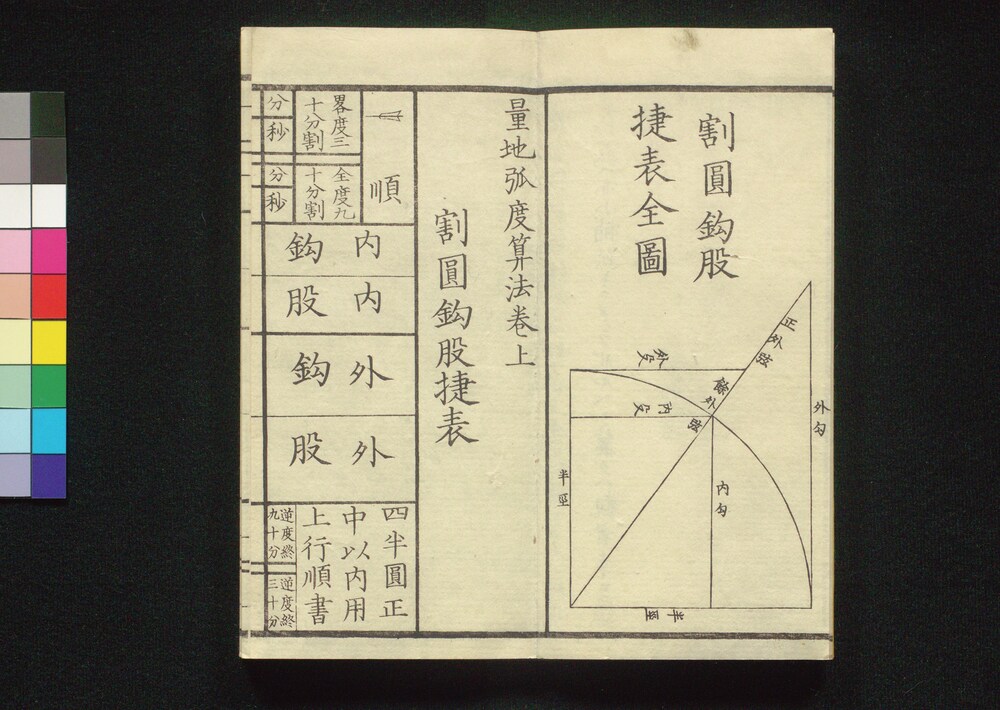 割圓鈎股
捷表全圖
正外弦
外勾
外殳
餘外弦
内殳
内勾
半径
半径
量地弧度算法卷上
割圓鈎股捷表
順
畧度三
十分割
全度九
十分割
分
秒
分
秒
内鈎
内股
外鈎
外股
四半圓正
中以内用
上行順書
逆度終
九十分
逆度終
三十分